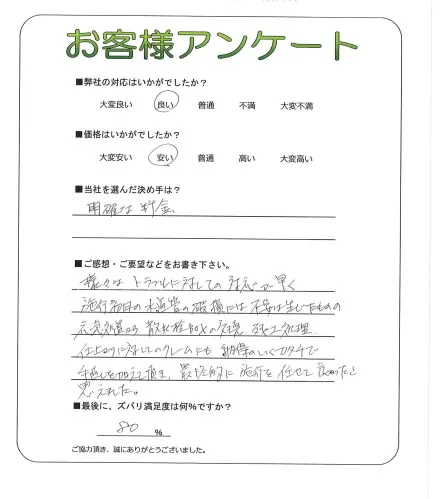 お客様アンケート
■弊社の対応はいかがでしたか？
大変良い 良い 普通 不満 大変不満
■価格はいかがでしたか？
大変安い 安い 普通 高い 大変高い
■当社を選んだ決め手は？
明確な料金
■ご感想・ご要望などをお書き下さい。
様々なトラブルに対しての対応が早く
施行初日の水道管の破損には不安は生じたものの
応急処置から散水栓BOXの交換、残土処理
仕上りに対してのクレームにも納得のいくカタチで
手直しを加えて頂き、最終的に施行を任せて良かったと
思えました。
■最後に、ズバリ満足度は何%ですか？
80 %
ご協力頂き、誠にありがとうございました。